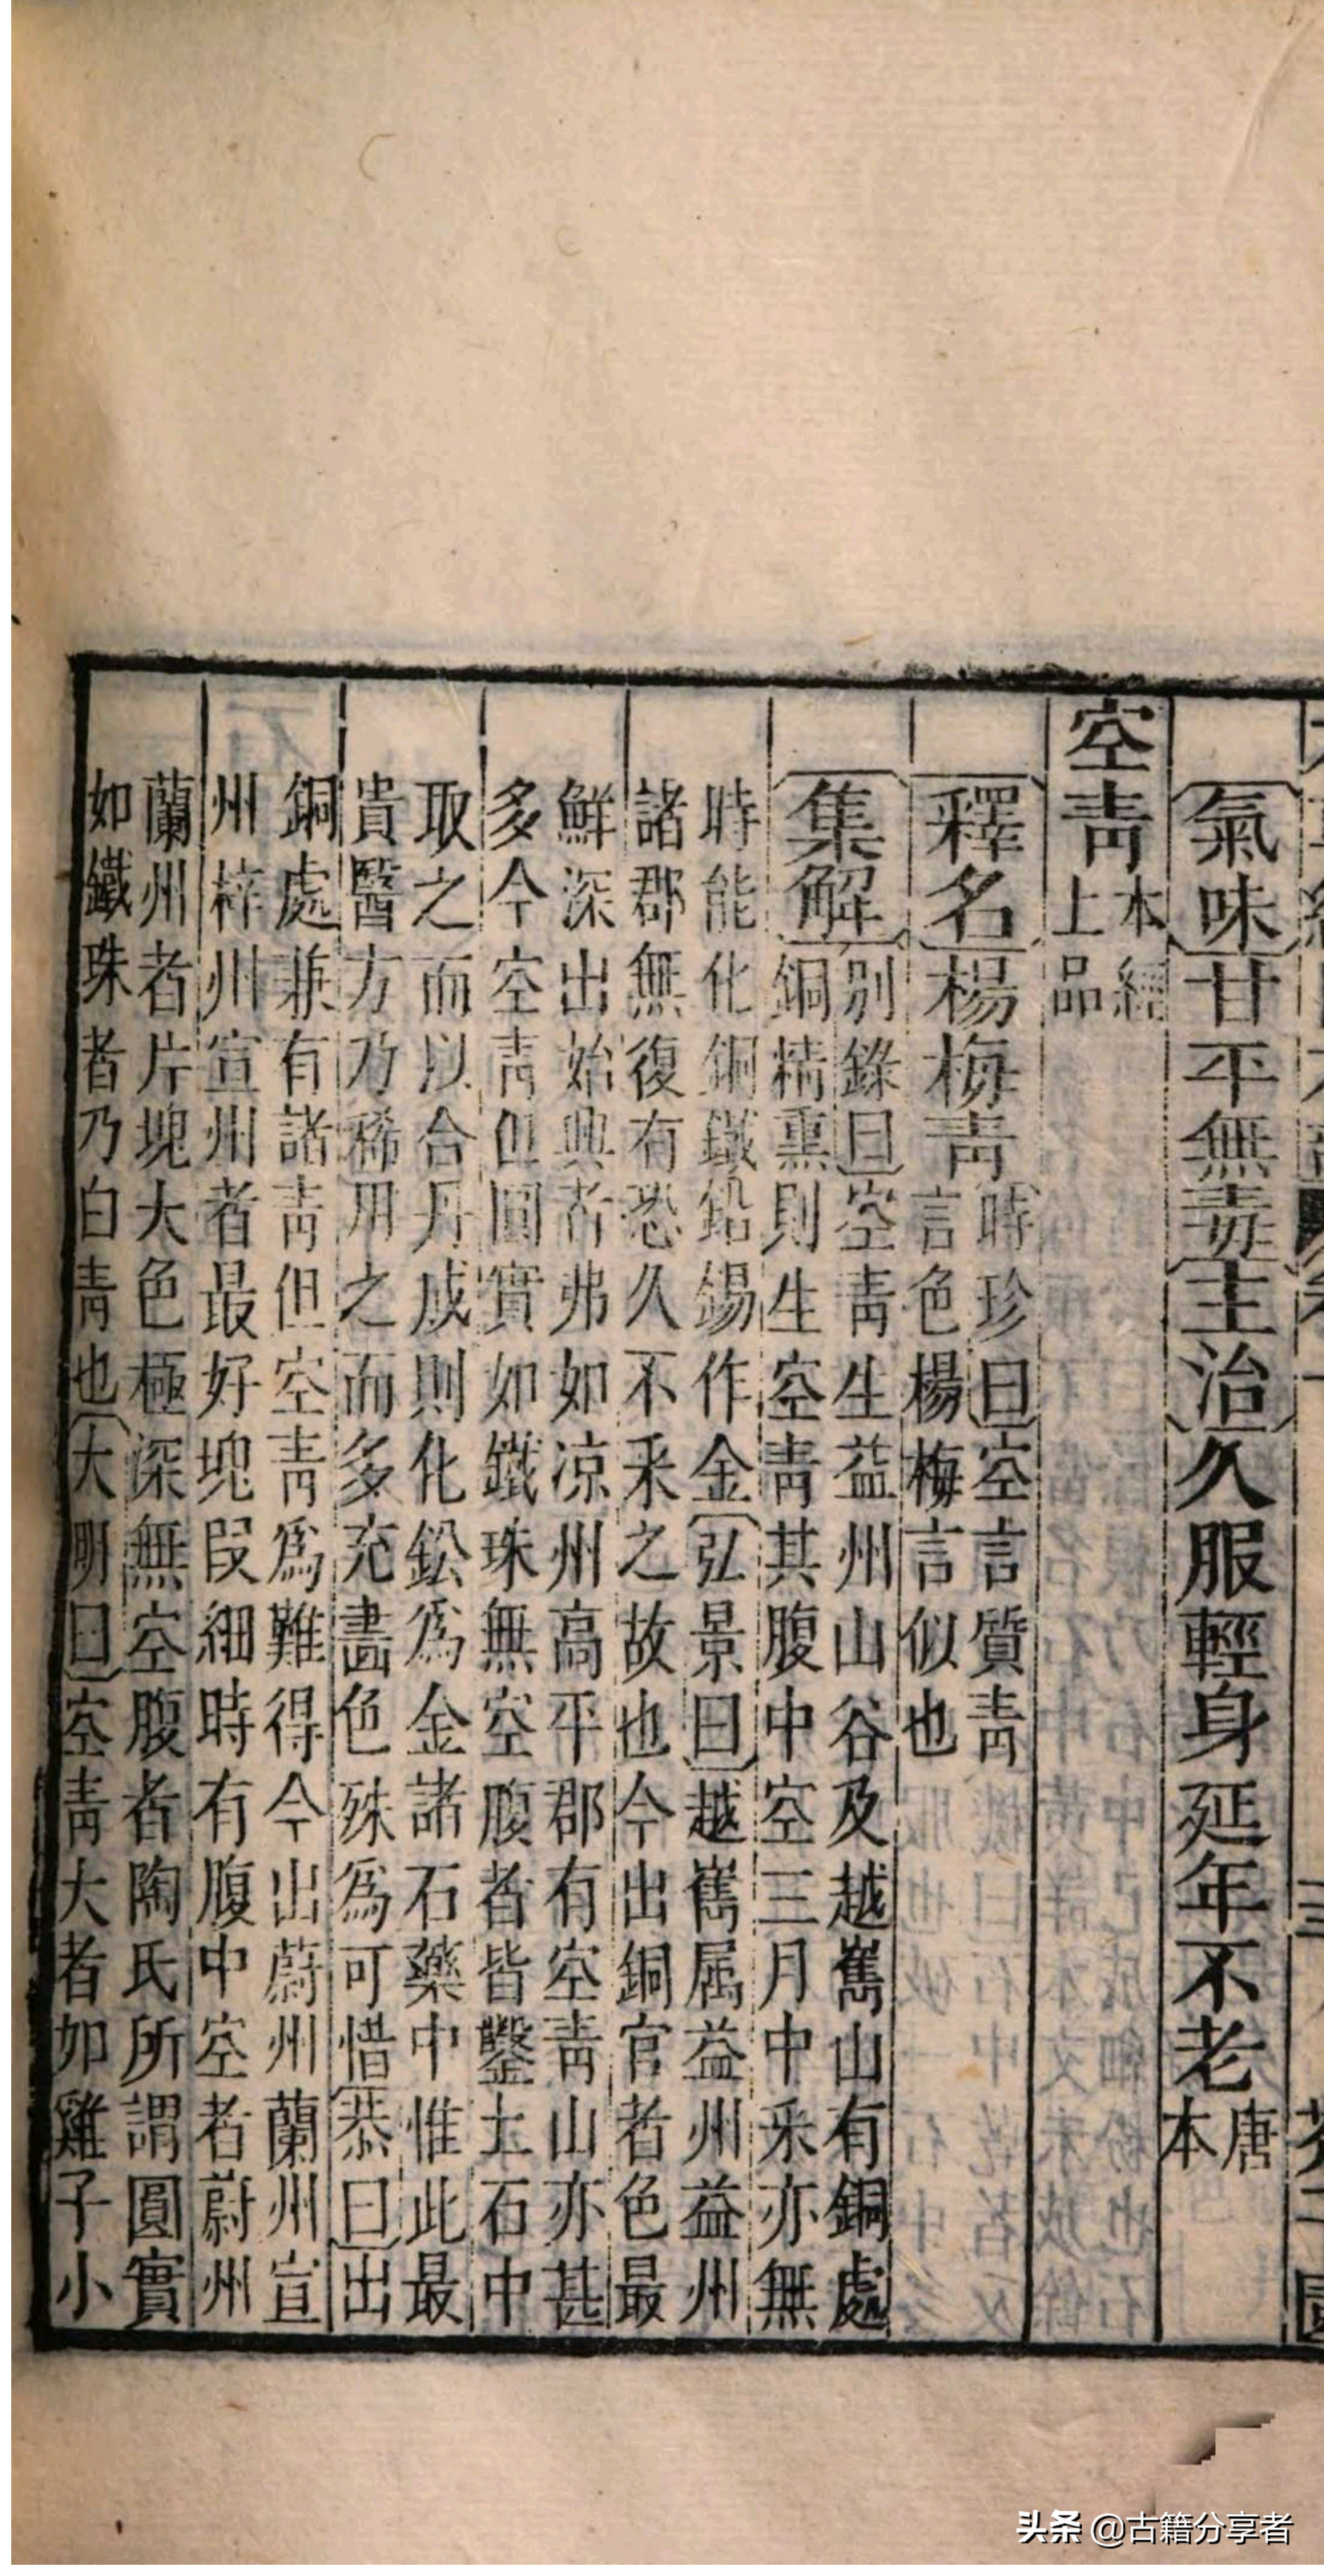 氣味甘平無毒主治久服輕身延年不老唐
本
空青本經
上品
釋名楊梅青時珍曰空言質青
言色楊梅言似也
集解別錄曰空青生益州山谷及越嶲山有銅處
銅精熏則生空青其腹中空三月中采亦無
時能化銅鐵鉛錫作金弘景曰越嶲屬益州益州
諸郡無復有恐久不采之故也今出銅官者色最
鮮深出始興者弗如凉州高平郡有空青山亦甚
多今空青但圓實如鐵珠無空腹者皆鑿土石中
取之而以合丹成則化鉛爲金諸石藥中惟此最
貴醫方乃稀用之而多充畫色殊爲可惜恭曰出
銅處兼有諸青但空青爲難得今出蔚州蘭州宣
州梓州宣州者最好塊段細時有腹中空者蔚州
蘭州者片塊大色極深無空腹者陶氏所謂圓實
如鐵珠者乃白青也大明曰空青大者如雞子小
头条 @古籍分享者